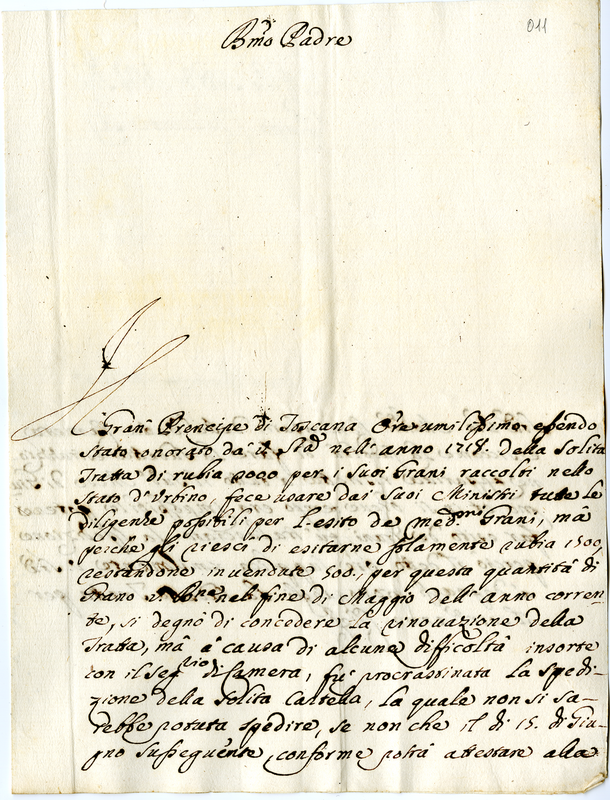 011
Bmõ Padre
Il
Gran Prencipe di Toscana Ore umilissimo essendo
stato onorato dà V. Stà nell'anno 1718. della Solita
Tratta di rubia 2000 per i suoi Grani raccolti nello
Stato d'Urbino, fece usare dai suoi Ministri tutte le
diligenze possibili per l'esito de medmi Grani, mà
perche gli riescì di esitarne solamente rubia 1500,
restandone invendute 500; per questa quantità di
Grano nel fine di Maggio dell'anno corren=
te, si degnò di concedere la rinovazione della
Tratta, mà à causa di alcune difficoltà insorte
con il Segrio di Camera, fù procrassinata la spedi=
zione della solita Cartella, la quale non si sa=
rebbe potuta spedire, se non che il dì 15. di Giu=
gno susseguente, conforme potrà attestare alla